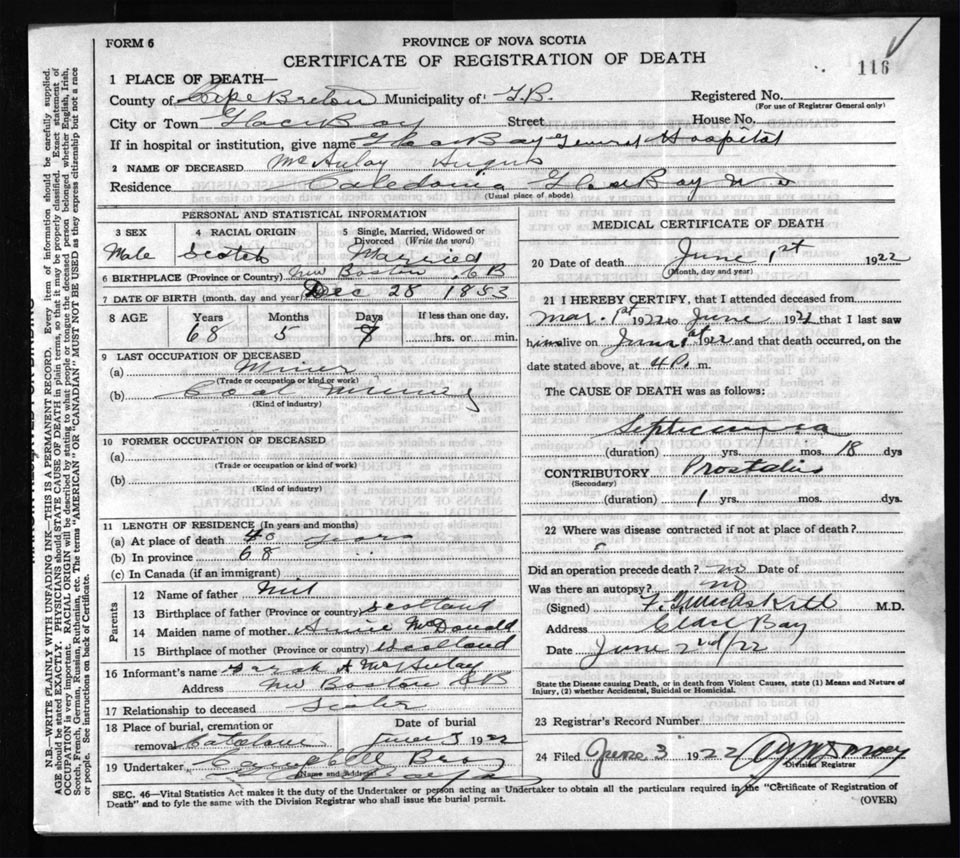 FORM 6
PROVINCE OF NOVA SCOTIA
CERTIFICATE OF REGISTRATION OF DEATH
116
1 PLACE OF DEATH—
County of Cape Breton Municipality of G.B. Registered No.
(For use of Registrar General only)
City or Town Glace Bay Street House No.
If in hospital or institution, give name Glace Bay General Hospital
2 NAME OF DECEASED McAulay Angus
Residence Caledonia Glace Bay N S
(Usual place of abode)
PERSONAL AND STATISTICAL INFORMATION
3 SEX 4 RACIAL ORIGIN 5 Single, Married, Widowed or Divorced (Write the word)
Male Scotch Married
6 BIRTHPLACE (Province or Country) New Boston C B
7 DATE OF BIRTH (month, day and year) Dec 28 1853
8 AGE Years Months Days If less than one day,
68 5 hrs. or min.
9 LAST OCCUPATION OF DECEASED
(a) Miner
(Trade or occupation or kind of work)
(b) Coal Mining
(Kind of industry)
10 FORMER OCCUPATION OF DECEASED
(a)
(Trade or occupation or kind of work)
(b)
(Kind of industry)
11 LENGTH OF RESIDENCE (In years and months)
(a) At place of death 40 years
(b) In province 68 " "
(c) In Canada (if an immigrant)
Parents
12 Name of father Neil
13 Birthplace of father (Province or country) Scotland
14 Maiden name of mother Annie McDonald
15 Birthplace of mother (Province or country) Scotland
16 Informant's name Sarah A McAulay
Address New Boston C B
17 Relationship to deceased Sister
18 Place of burial, cremation or removal Catalone Date of burial June 3 1922
19 Undertaker Campbell Bros
(Name and Address)
MEDICAL CERTIFICATE OF DEATH
20 Date of death June 1st 1922
(Month, day and year)
21 I HEREBY CERTIFY, that I attended deceased from
Mar. 1st 1922 to June 1922 that I last saw
him alive on June 1st 1922 and that death occurred, on the
date stated above, at 4 P. m.
The CAUSE OF DEATH was as follows:
Septicemia
(duration) yrs. mos. 18 dys
CONTRIBUTORY Prostatitis
(Secondary)
(duration) 1 yrs. mos. dys.
22 Where was disease contracted if not at place of death?
Did an operation precede death? no Date of
Was there an autopsy? no
(Signed) McAskill M.D.
Address Glace Bay
Date June 2nd/22
State the Disease causing Death, or in death from Violent Causes, state (1) Means and Nature of Injury, (2) whether Accidental, Suicidal or Homicidal.
23 Registrar's Record Number
24 Filed June 3 1922
Division Registrar
SEC. 46—Vital Statistics Act makes it the duty of the Undertaker or person acting as Undertaker to obtain all the particulars required in the "Certificate of Registration of
Death" and to fyle the same with the Division Registrar who shall issue the burial permit.
(OVER)
N.B.—WRITE PLAINLY WITH UNFADING INK—THIS IS A PERMANENT RECORD. Every item of information should be carefully supplied.
AGE should be stated EXACTLY. PHYSICIANS should STATE CAUSE OF DEATH in plain terms, so that it may be properly classified. Exact statement of
OCCUPATION is very important. RACIAL ORIGIN will be described by stating to what people or tongue the deceased person belonged whether English, Irish,
Scotch, French, German, Russian, Ruthenian, etc. The terms "AMERICAN" OR "CANADIAN" MUST NOT BE USED as they express citizenship but not a race
or people. See instructions on back of Certificate.